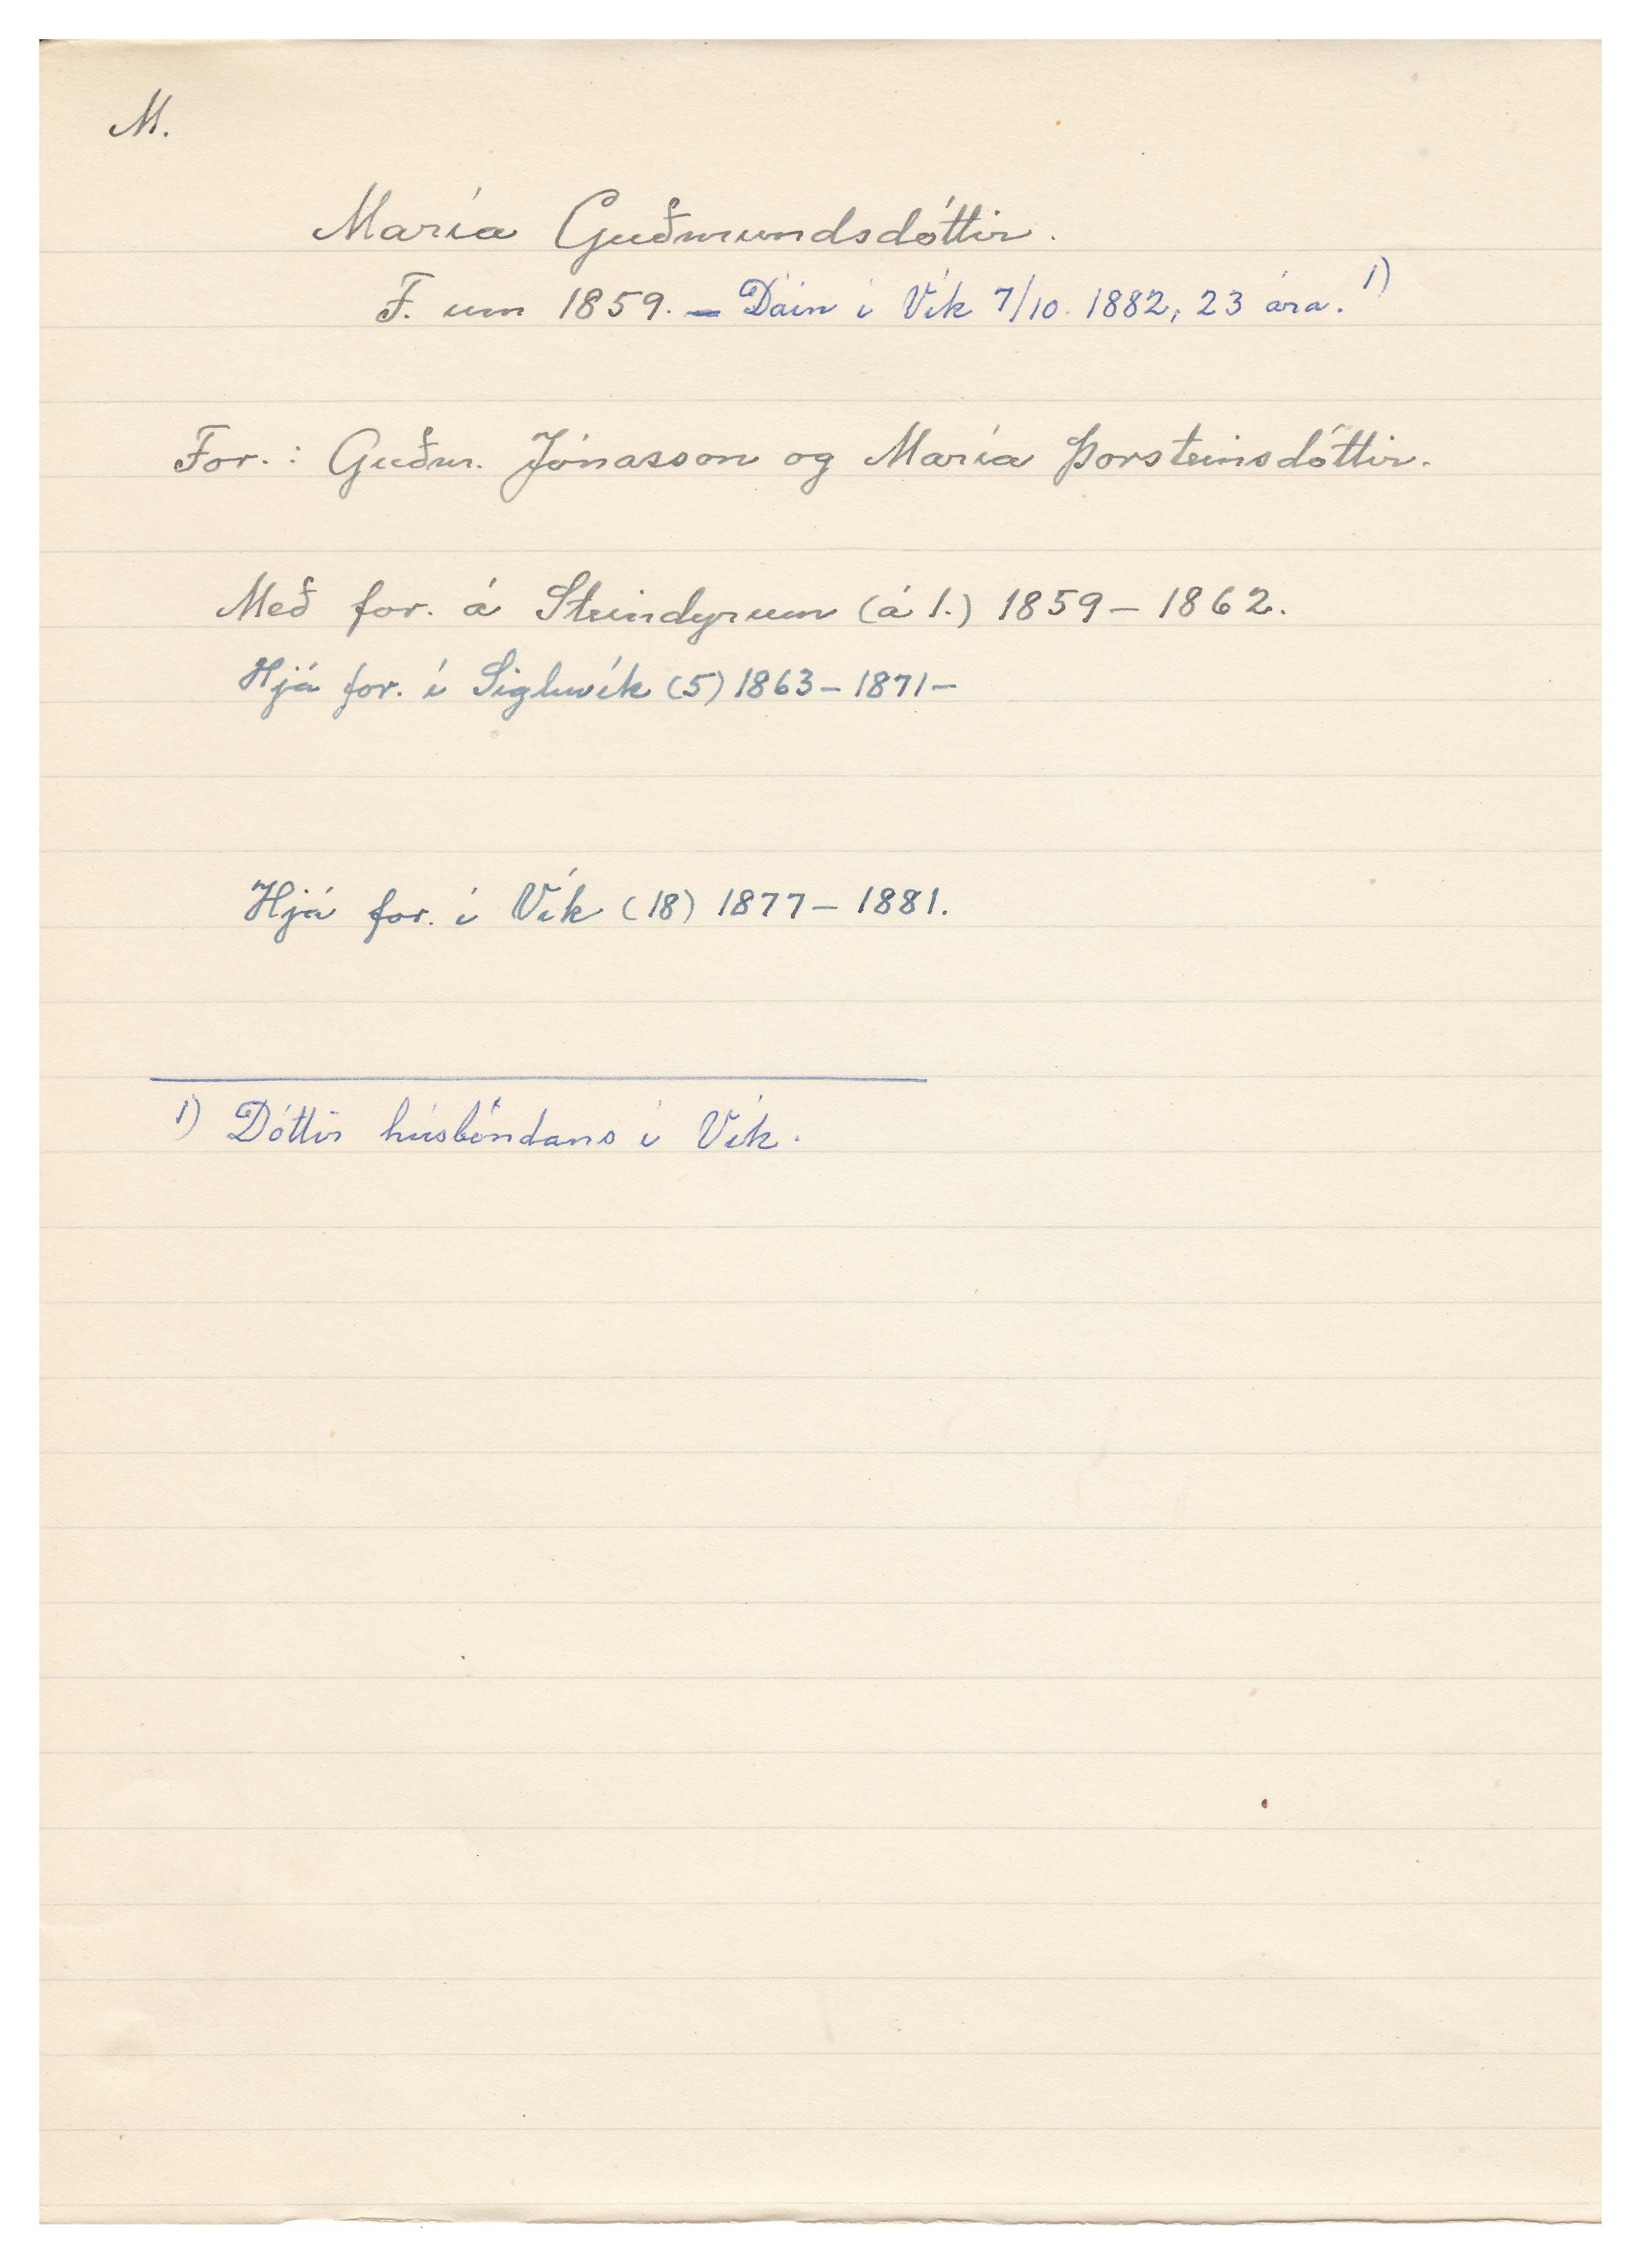 M.
María Guðmundsdóttir.
F. um 1859. – Dáin í Vík 7/10. 1882, 23 ára. 1)
For.: Guðm. Jónasson og María Þorsteinsdóttir.
Með for. á Steindyrum (á 1.) 1859 – 1862.
Hjá for. í Sigluvík (5) 1863 – 1871 –
Hjá for. í Vík (18) 1877 – 1881.
1) Dóttir húsbóndans í Vík.